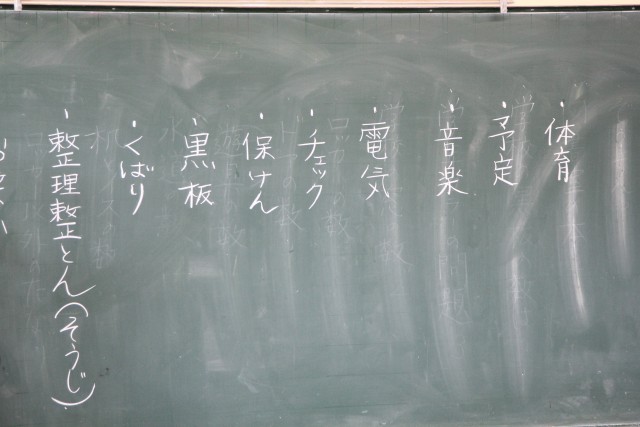 ・体育
・予定
・音楽
・電気
・チェック
・保けん
・黒板
・くばり
・整理整とん(そうじ)